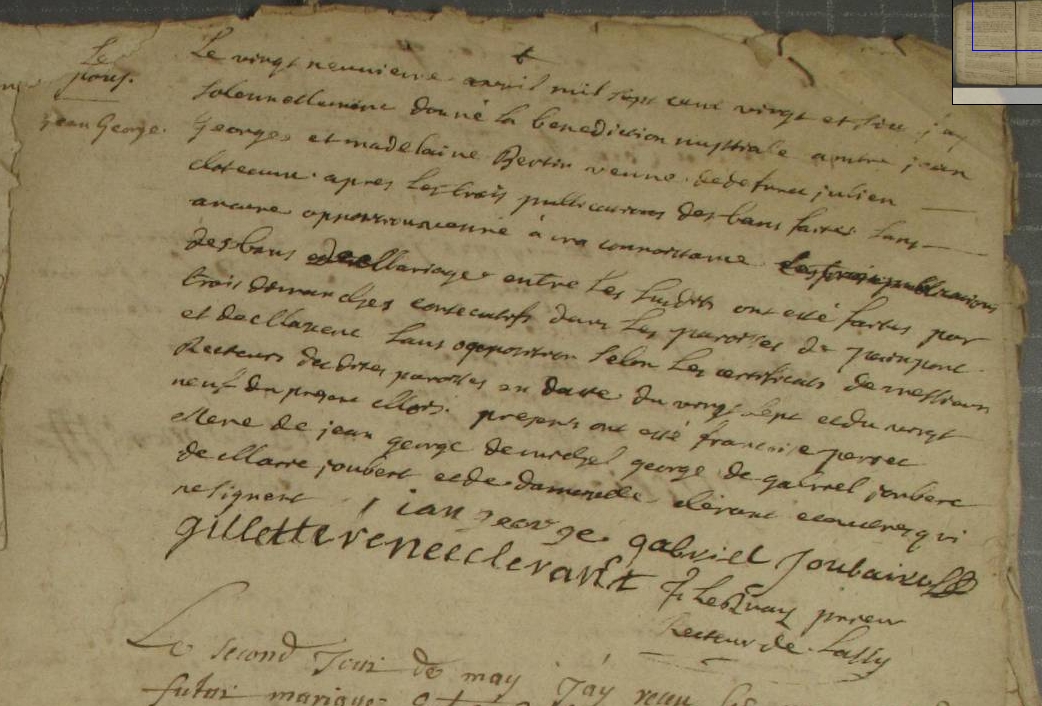 Le
pouſ.
jean George.
Le vingt neuuieme avril mil sept cent vingt et six j'ay
solennellement donné la benediction nuptiale a entre jean
George et madelaine Bertin veuue de defunct julien
apres les trois publications des bans faites sans
aucune opposition venue à ma connoissance les trois publications
des bans de Mariage entre les susdits ont esté faites par
trois dimanches consecutifs dans les paroisses de painpont
et de Maxent sans oppposition selon les certificats de messieurs
Recteurs des dites paroisses en datte du vingt sept et du vingt
neuf du present Mois. presens ont esté francoise perret
Mere de jean george de michel george de gabriel joubert
de Marie joubert et de damoiselle clerant et autres qui
ne signent
jan george gabriel Joubaire
gillette renee clerant
F Lesquay prieur
Recteur de Lassy
Le second Jour de may J'ay receu les
futur mariage